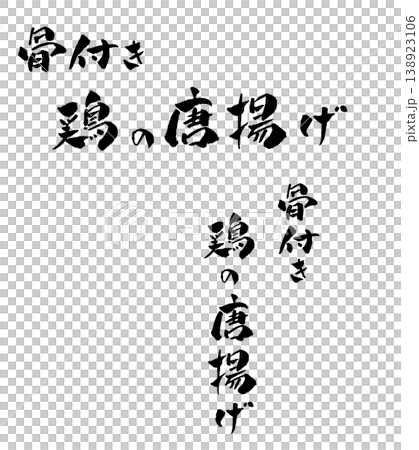 骨付き
鶏の唐揚げ
骨付き
鶏の唐揚げ
pixta.jp - 138923106